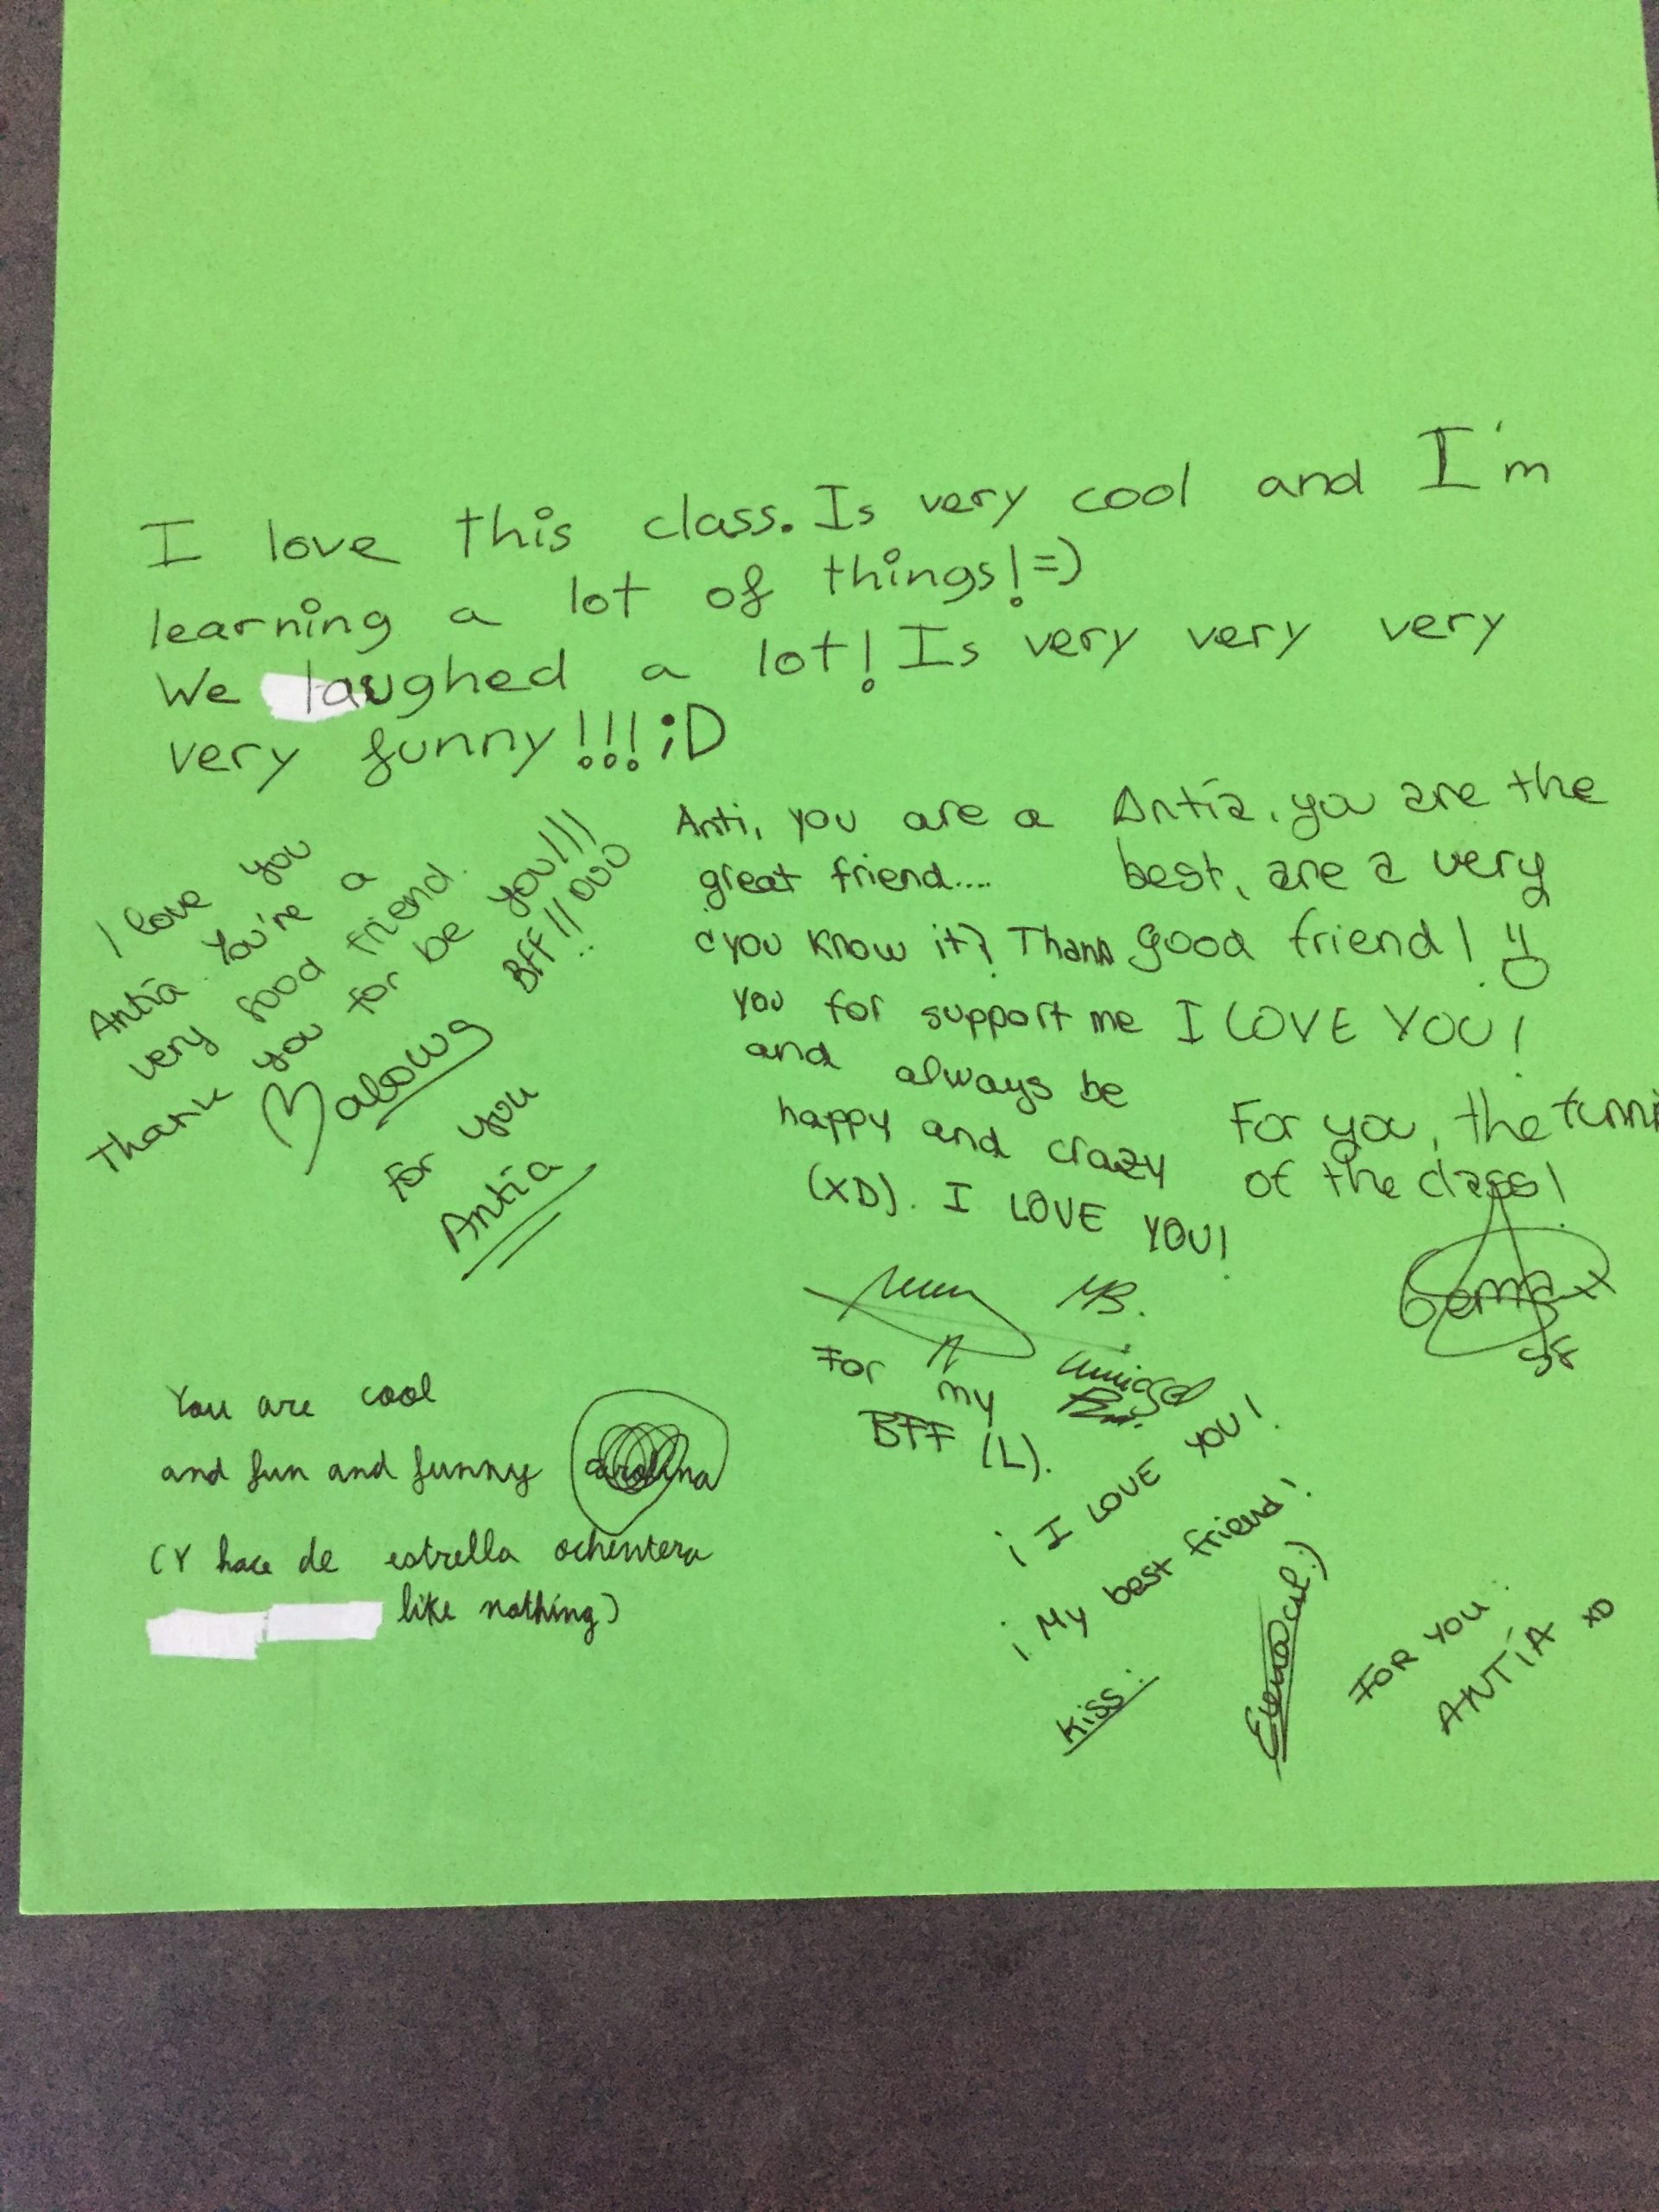 I love this class. Is very cool and I'm
learning a lot of things! =)
We laughed a lot! Is very very very
very funny!!! ;D
I love you
Antía. You're a
very good friend.
Thank you for be you!!!
BFF!!
for you
Antía
Anti, you are a
great friend....
¿you know it? Thank
you for support me
and always be
happy and crazy
(XD). I LOVE YOU!
MB.
For my
BFF (L).
Antía, you are the
best, are a very
good friend!
I LOVE YOU!
For you, the funni
of the class!
Gema
You are cool
and fun and funny carolina
(Y hace de estrella ochentera
like nothing)
¡I LOVE YOU!
¡My best friend!
kiss.
FOR YOU:
ANTÍA XD